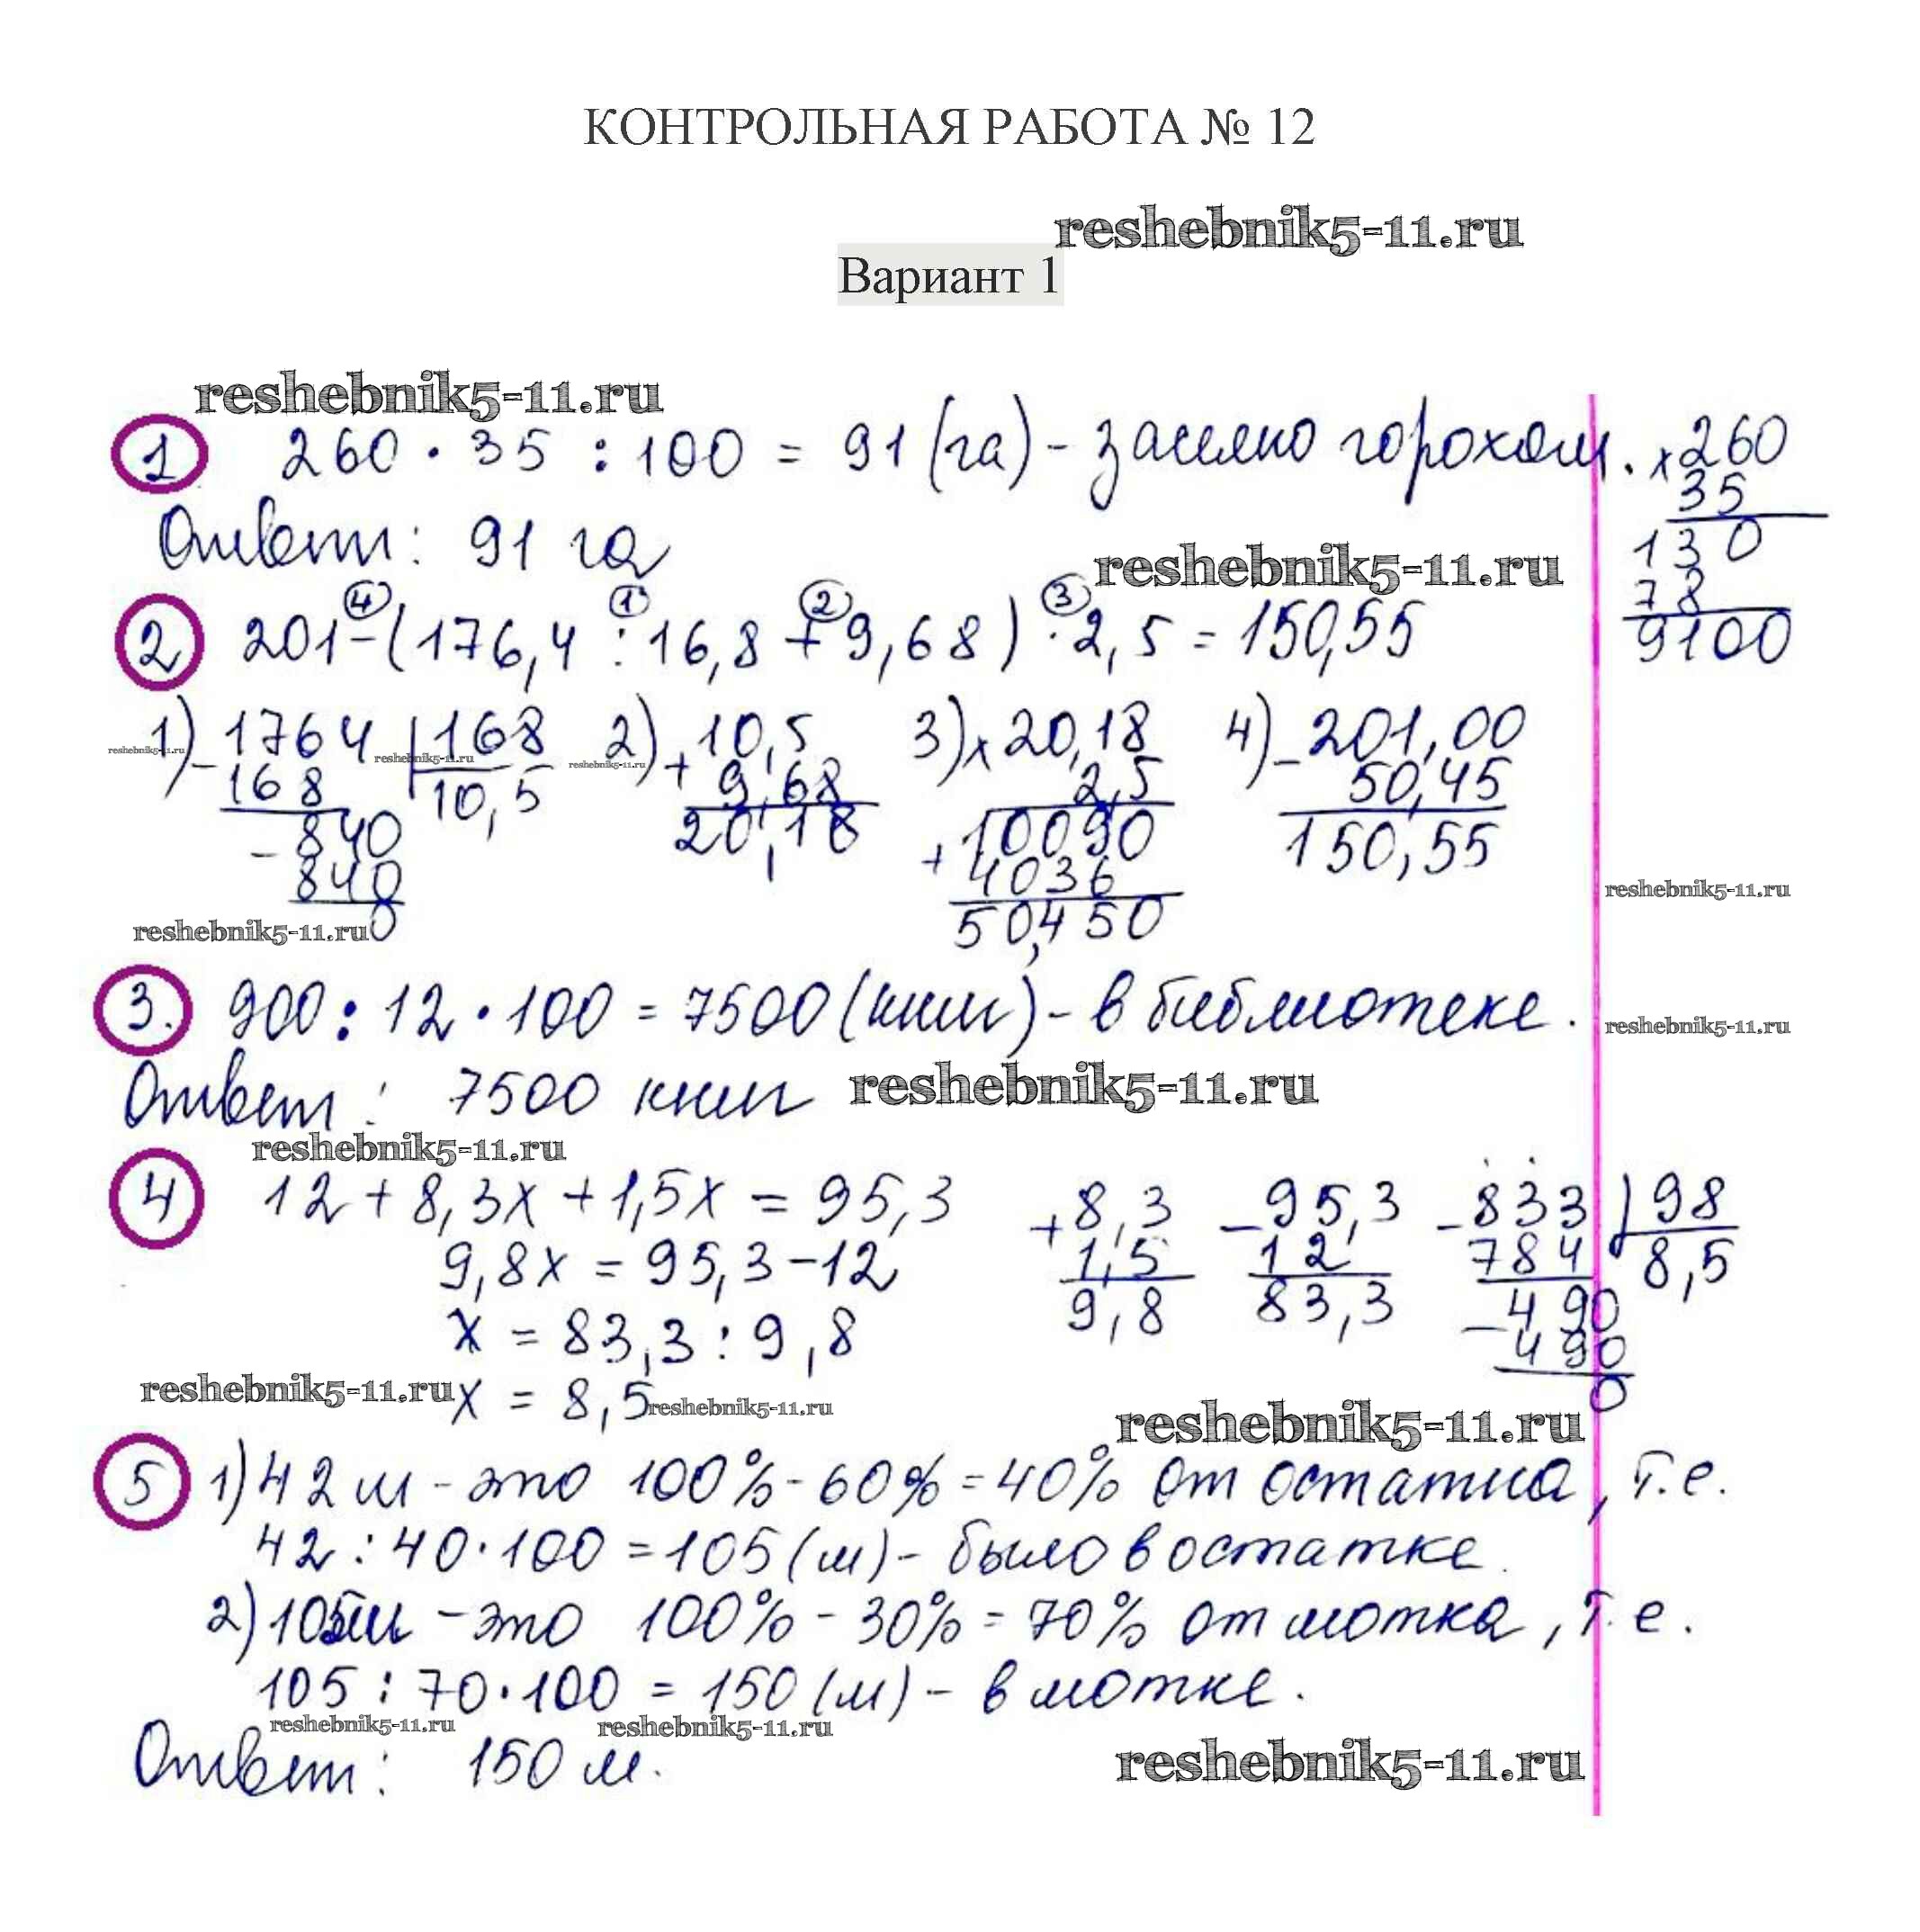 КОНТРОЛЬНАЯ РАБОТА № 12
reshebnik5-11.ru
Вариант 1
reshebnik5-11.ru
1 260 · 35 : 100 = 91 (га) - засеяно горохом. × 260
35
Ответ: 91 га
130
reshebnik5-11.ru
78
9100
④ ① ② ③
2 201 - (176,4 : 16,8 + 9,68) · 2,5 = 150,55
1) - 1764 | 168 2) + 10,5 3) × 20,18 4) - 201,00
reshebnik5-11.ru reshebnik5-11.ru reshebnik5-11.ru
168 10,5 9,68 2,5 50,45
- 840 20,18 + 10090 150,55
840 4036
reshebnik5-11.ru
0 50,450
reshebnik5-11.ru
3. 900 : 12 · 100 = 7500 (книг) - в библиотеке.
reshebnik5-11.ru
Ответ: 7500 книг
reshebnik5-11.ru
reshebnik5-11.ru
4 12 + 8,3x + 1,5x = 95,3 + 8,3 - 95,3 - 833 | 98
9,8x = 95,3 - 12 1,5 12 784 8,5
x = 83,3 : 9,8 9,8 83,3 - 490
490
reshebnik5-11.ru x = 8,5 reshebnik5-11.ru 0
reshebnik5-11.ru
5 1) 42 м - это 100% - 60% = 40% от остатка, т.е.
42 : 40 · 100 = 105 (м) - было в остатке.
2) 105 м - это 100% - 30% = 70% от мотка, т.е.
105 : 70 · 100 = 150 (м) - в мотке.
reshebnik5-11.ru reshebnik5-11.ru
Ответ: 150 м.
reshebnik5-11.ru